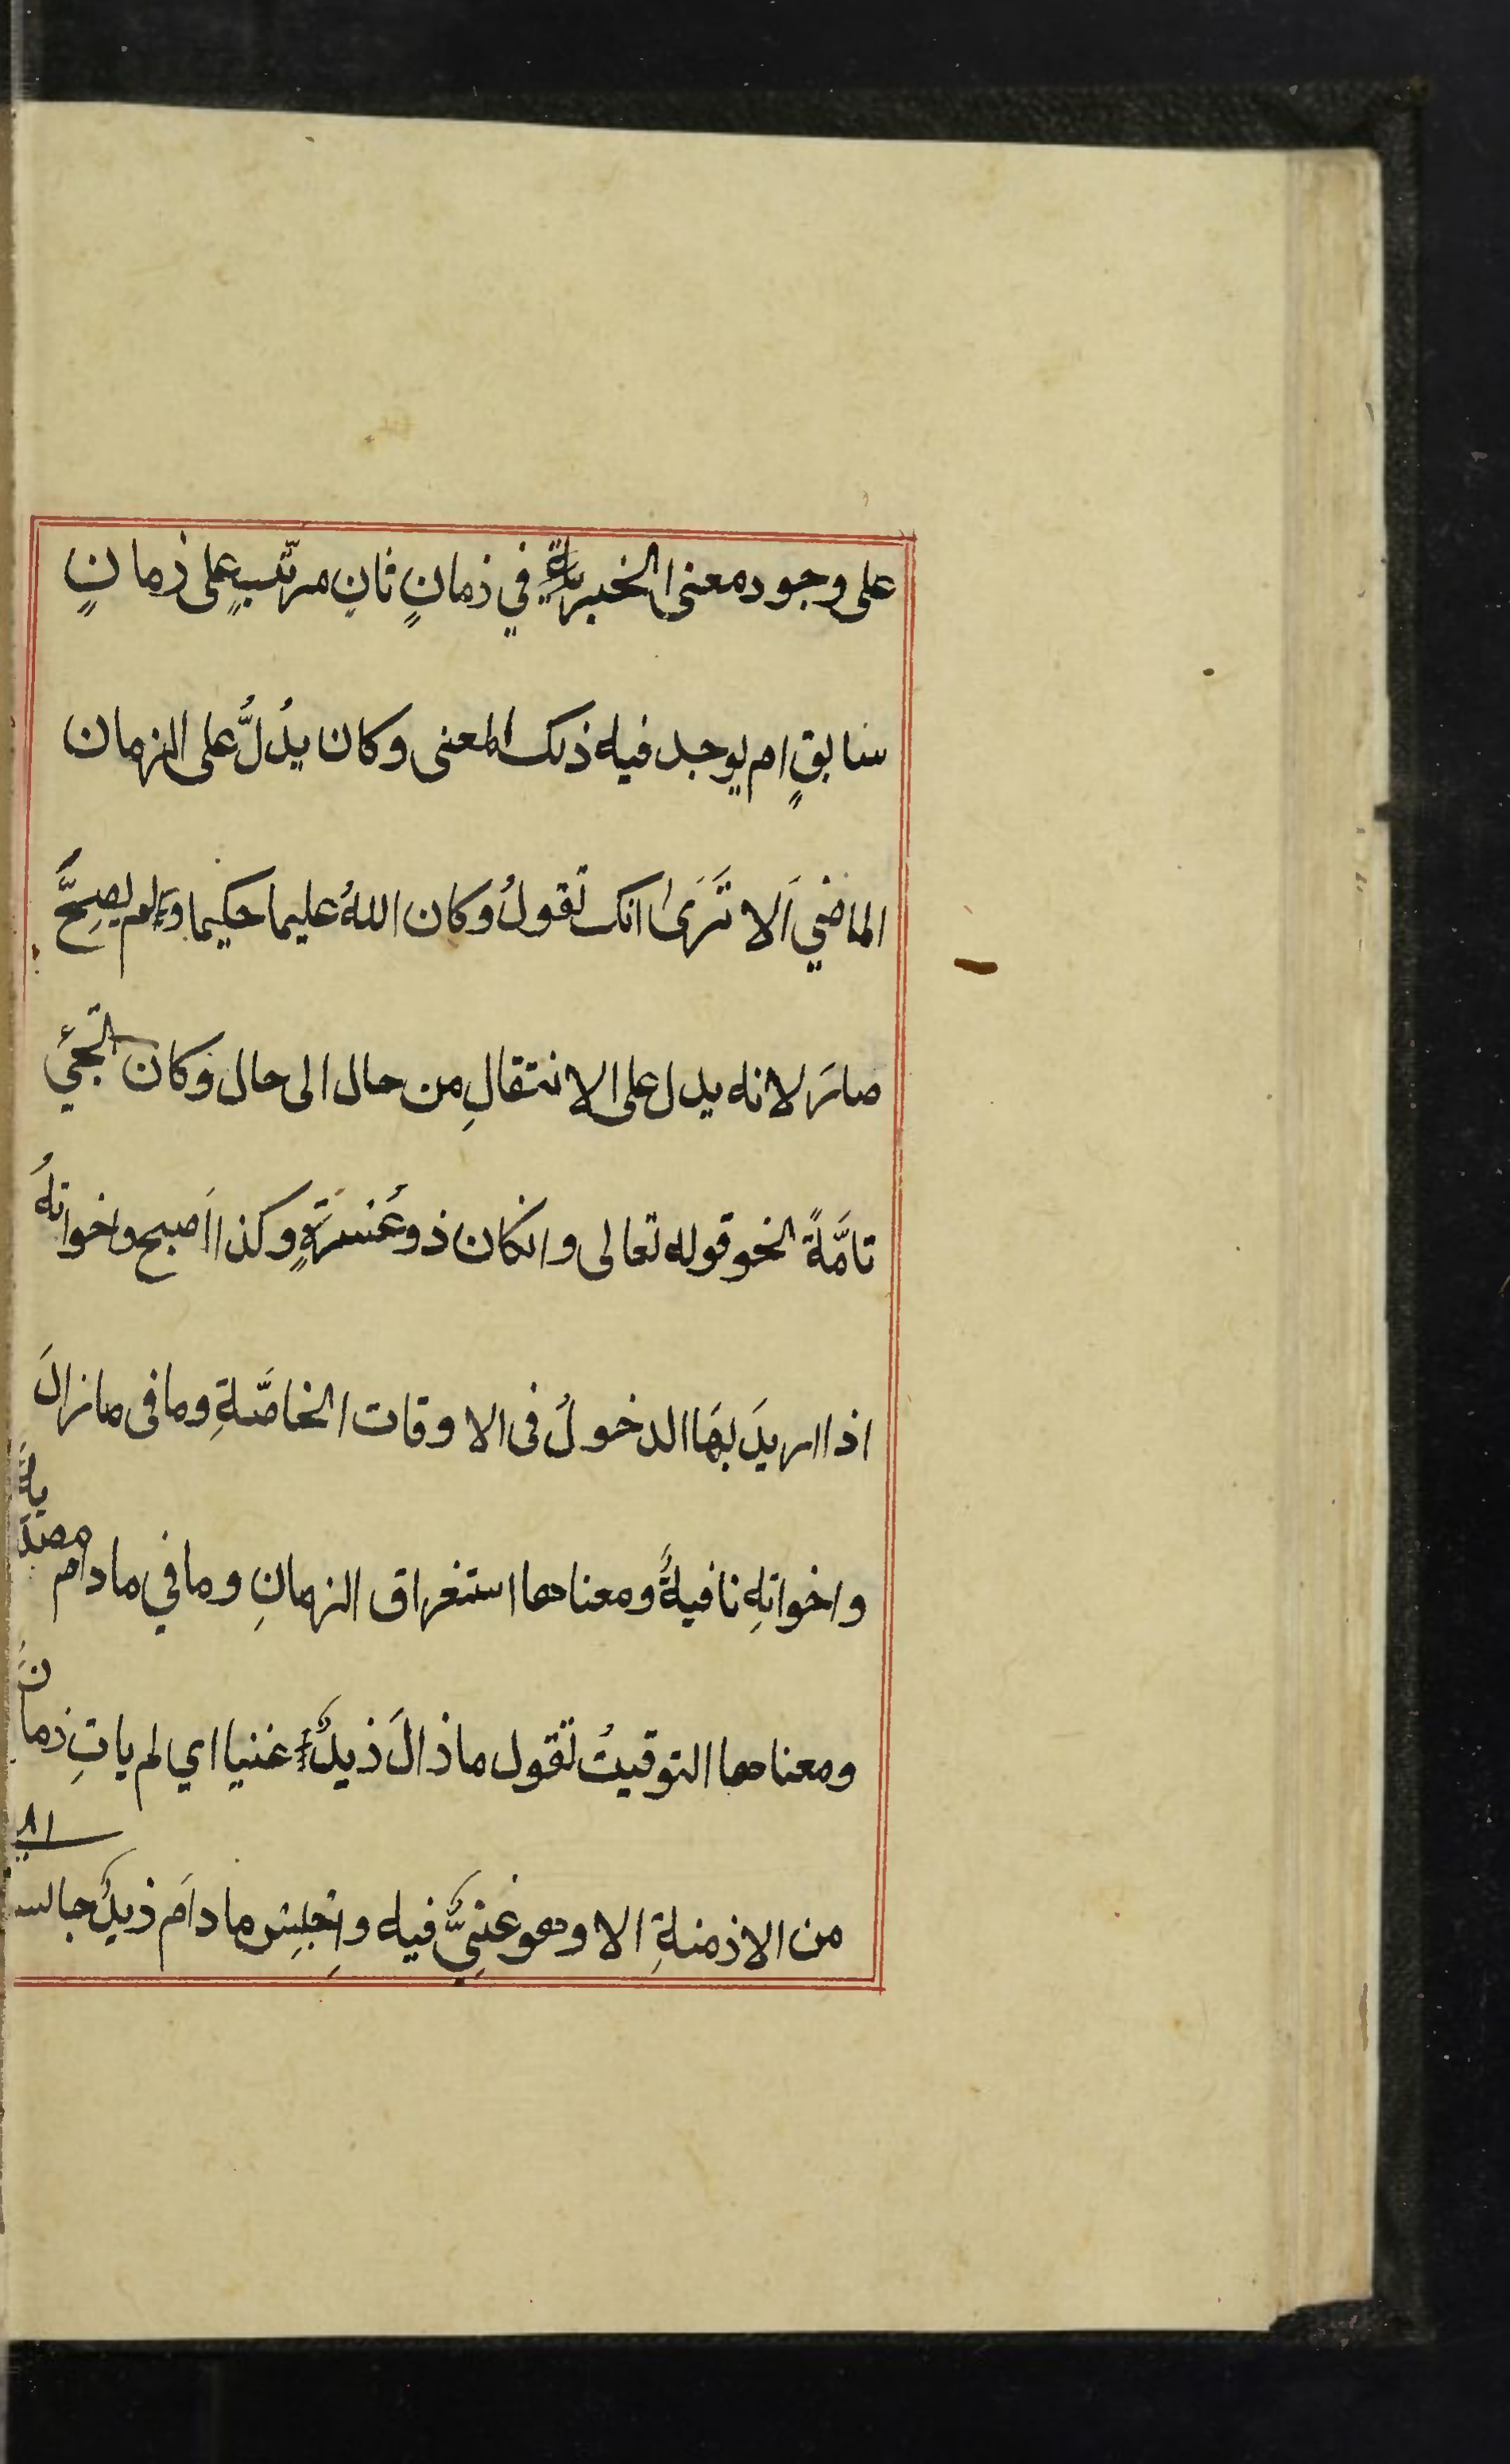 على وجود معنى الخبرية في ذمانٍ ثانٍ مرتّبٍ على ذمانٍ
سابقٍ ام يوجد فيه ذلك المعنى وكان يدُلُّ على الزمان
الماضي اَلا تَرَى انك تقولُ وكان اللهُ عليما حكيما ولم يصِحَّ
صارَ لانه يدل على الانتقالِ من حال الى حال وكان تجئ
تامَّةً نحو قوله تعالى وانكان ذو عُسرَةٍ وكذا اَصبح واخواتهُ
اذا اريدَ بهَا الدخولُ فى الاوقات الخاصَّةِ وما فى مازالَ
واخواتِهِ نافيةٌ ومعناها استغراق الزمانِ وما في مادام مصدَريةٌ
ومعناها التوقيتُ تقول ماذالَ ذيدٌ غنيا اي لم ياتِ ذمانٌ
من الاذمنةِ الا وهو غنِيٌّ فيه واِجلِس مادَام ذيدٌ جالسا